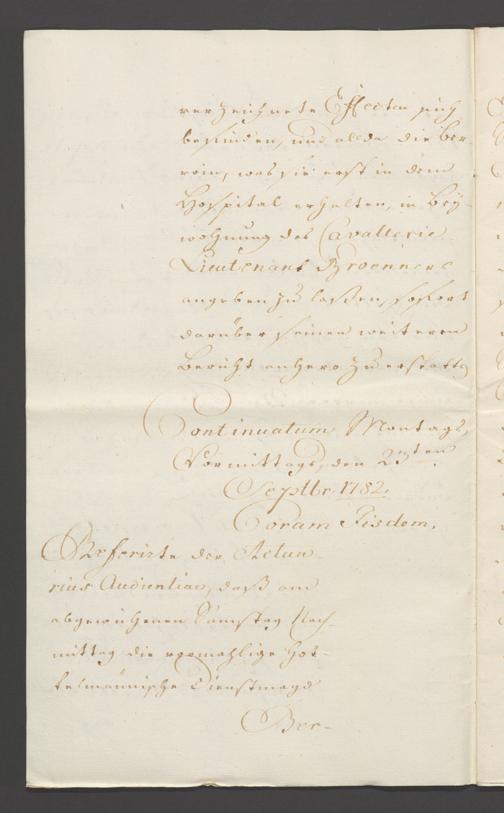 verzeichnete Effecten sich
befinden, und alda die Ber-
wein, was sie erst in dem
Hospital erhalten, in Bey-
wohnung des Cavallerie
Lieutenant Broenners
angeben zu laßen, sofort
darüber seinen weiteren
Bericht anhero zu erstatten
Continuatum Montags
Vormittags, den 23ten
Septbr. 1782.
Coram Iisdem.
Referirte der Actua-
rius Audientiae, daß am
abgewichenen Samstag Nach-
mittag die vormahlige
Dienstmagd
Ber-